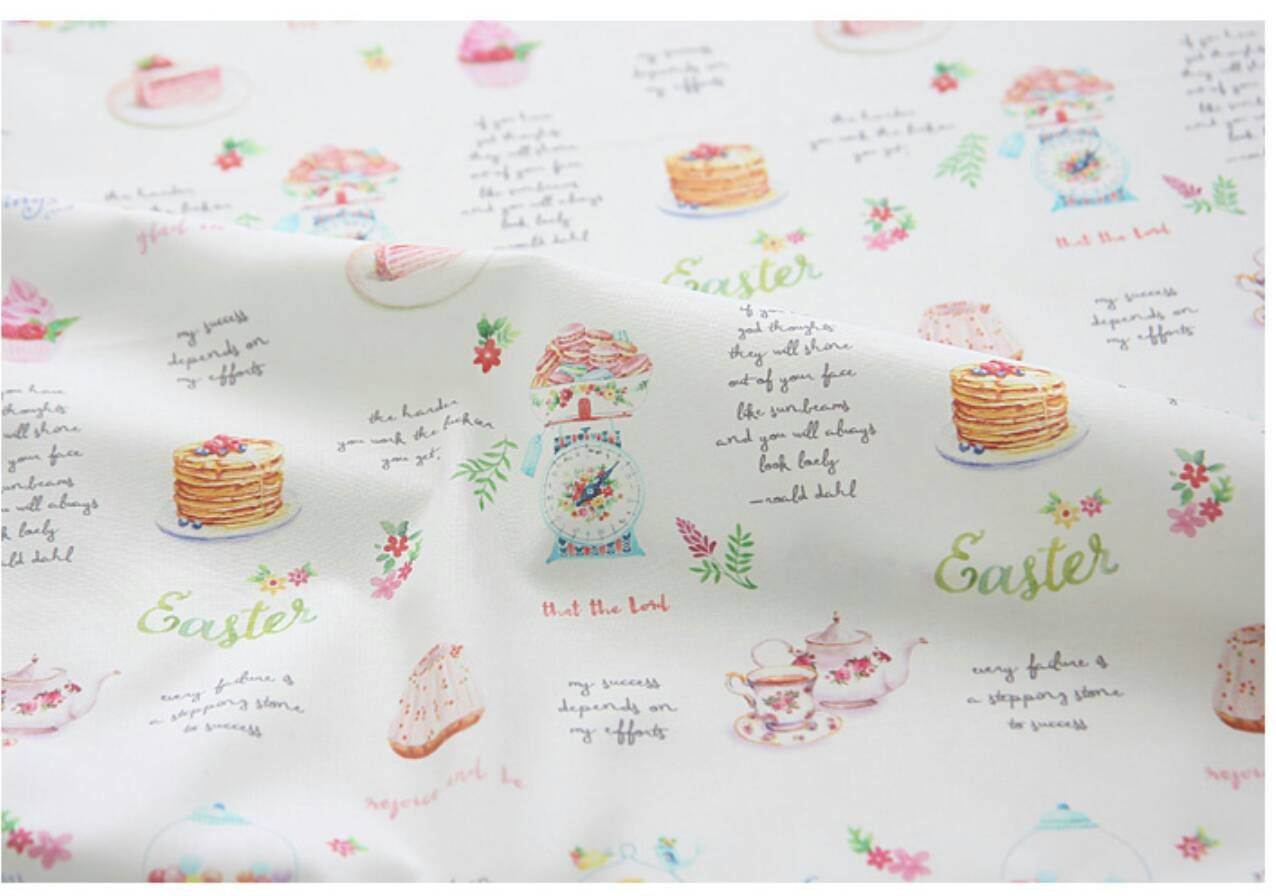 my success
depends on
my efforts
if you have
god thoughts
they will shine
out of your face
like sunbeams
and you will always
look lovely
the harder
you work the luckier
you get.
that the Lord
Easter
my success
depends on
my efforts
my success
depends on
my efforts
the harder
you work the luckier
you get.
god thoughts
they will shone
out of your face
like sunbeams
and you will always
look loely
—roald dahl
thoughts
will shone
your face
will always
loely
dahl
Easter
Easter
that the Lord
every failure is
a stepping stone
to success
my success
depends on
my efforts
every failure is
a stepping stone
to success
rejoice and be